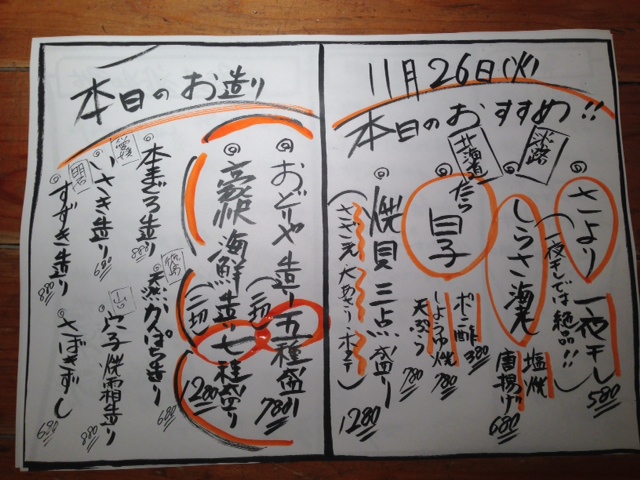 11月26日(火)
本日のおすすめ!!
淡路
さより 一夜干し 580
(一夜干しでは絶品!!)
しらさ海老
塩焼
唐揚げ
680
北海道
たら
白子
ポン酢 380
しょうゆ焼 780
天ぷら 780
焼貝三点盛り 1280
本日のお造り
おどりや造り五種盛り
(二切) 780
豪快海鮮造り七種盛り
(二切) 1280
愛媛
本まぐろ造り 880
徳島
天然かんぱち造り 680
いさき造り 680
穴子焼霜造り 880
明石
すずき造り 880
さばきずし 680